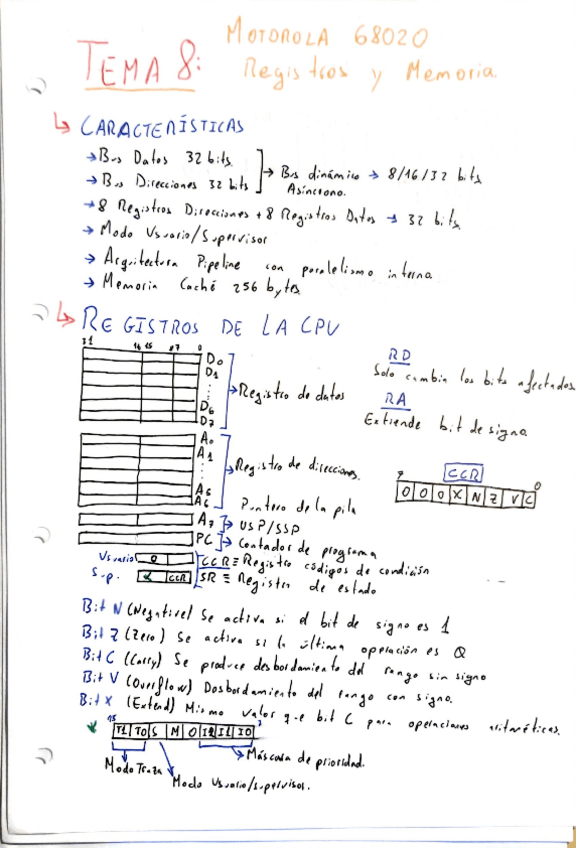 MOTOROLA 68020
TEMA 8: Registros y Memoria
↳ CARACTERÍSTICAS
→ Bus Datos 32 bits
→ Bus Direcciones 32 bits
→ Bus dinámico → 8/16/32 bits
Asíncrono.
→ 8 Registros Direcciones + 8 Registros Datos → 32 bits
→ Modo Usuario/Supervisor
→ Arquitectura Pipeline con paralelismo interno.
→ Memoria Caché 256 bytes
↳ REGISTROS DE LA CPU
31 16 15 8 7 0
D0
D1
D6
D7
→ Registro de datos
RD
Solo cambia los bits afectados
RA
Extiende bit de signo.
A0
A1
A5
A6
→ Registro de direcciones.
CCR
0
0 0 0 X N Z V C
Puntero de la pila
A7 → USP/SSP
PC → Contador de programa
Usuario 0 CCR ≡ Registro códigos de condición
Sup. CCR SR ≡ Registro de estado
Bit N (Negative) Se activa si el bit de signo es 1
Bit Z (Zero) Se activa si la última operación es 0
Bit C (Carry) Se produce desbordamiento del rango sin signo
Bit V (Overflow) Dosbordamiento del rango con signo.
Bit X (Extend) Mismo valor que bit C para operaciones aritméticas.
15
T1 T0 S M 0 I2 I1 I0
→ Máscara de prioridad.
Modo Traza
Modo Usuario/supervisor.